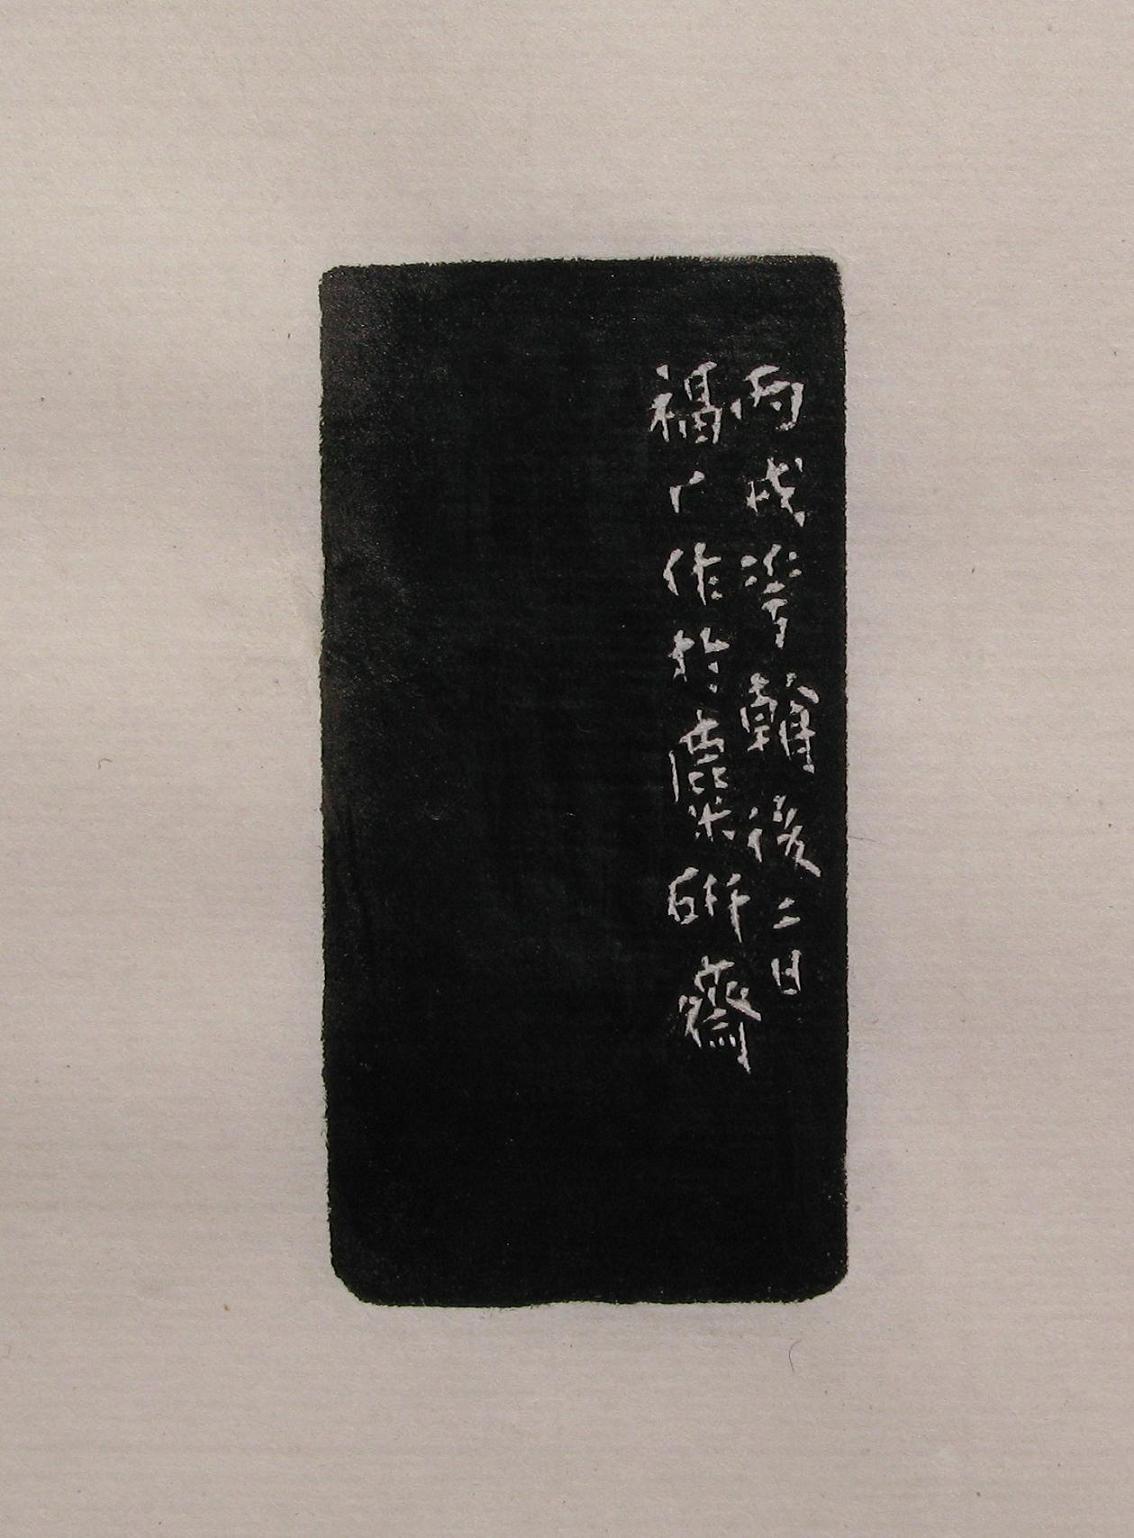 丙戌華朝後二日
福厂作於麋研齋